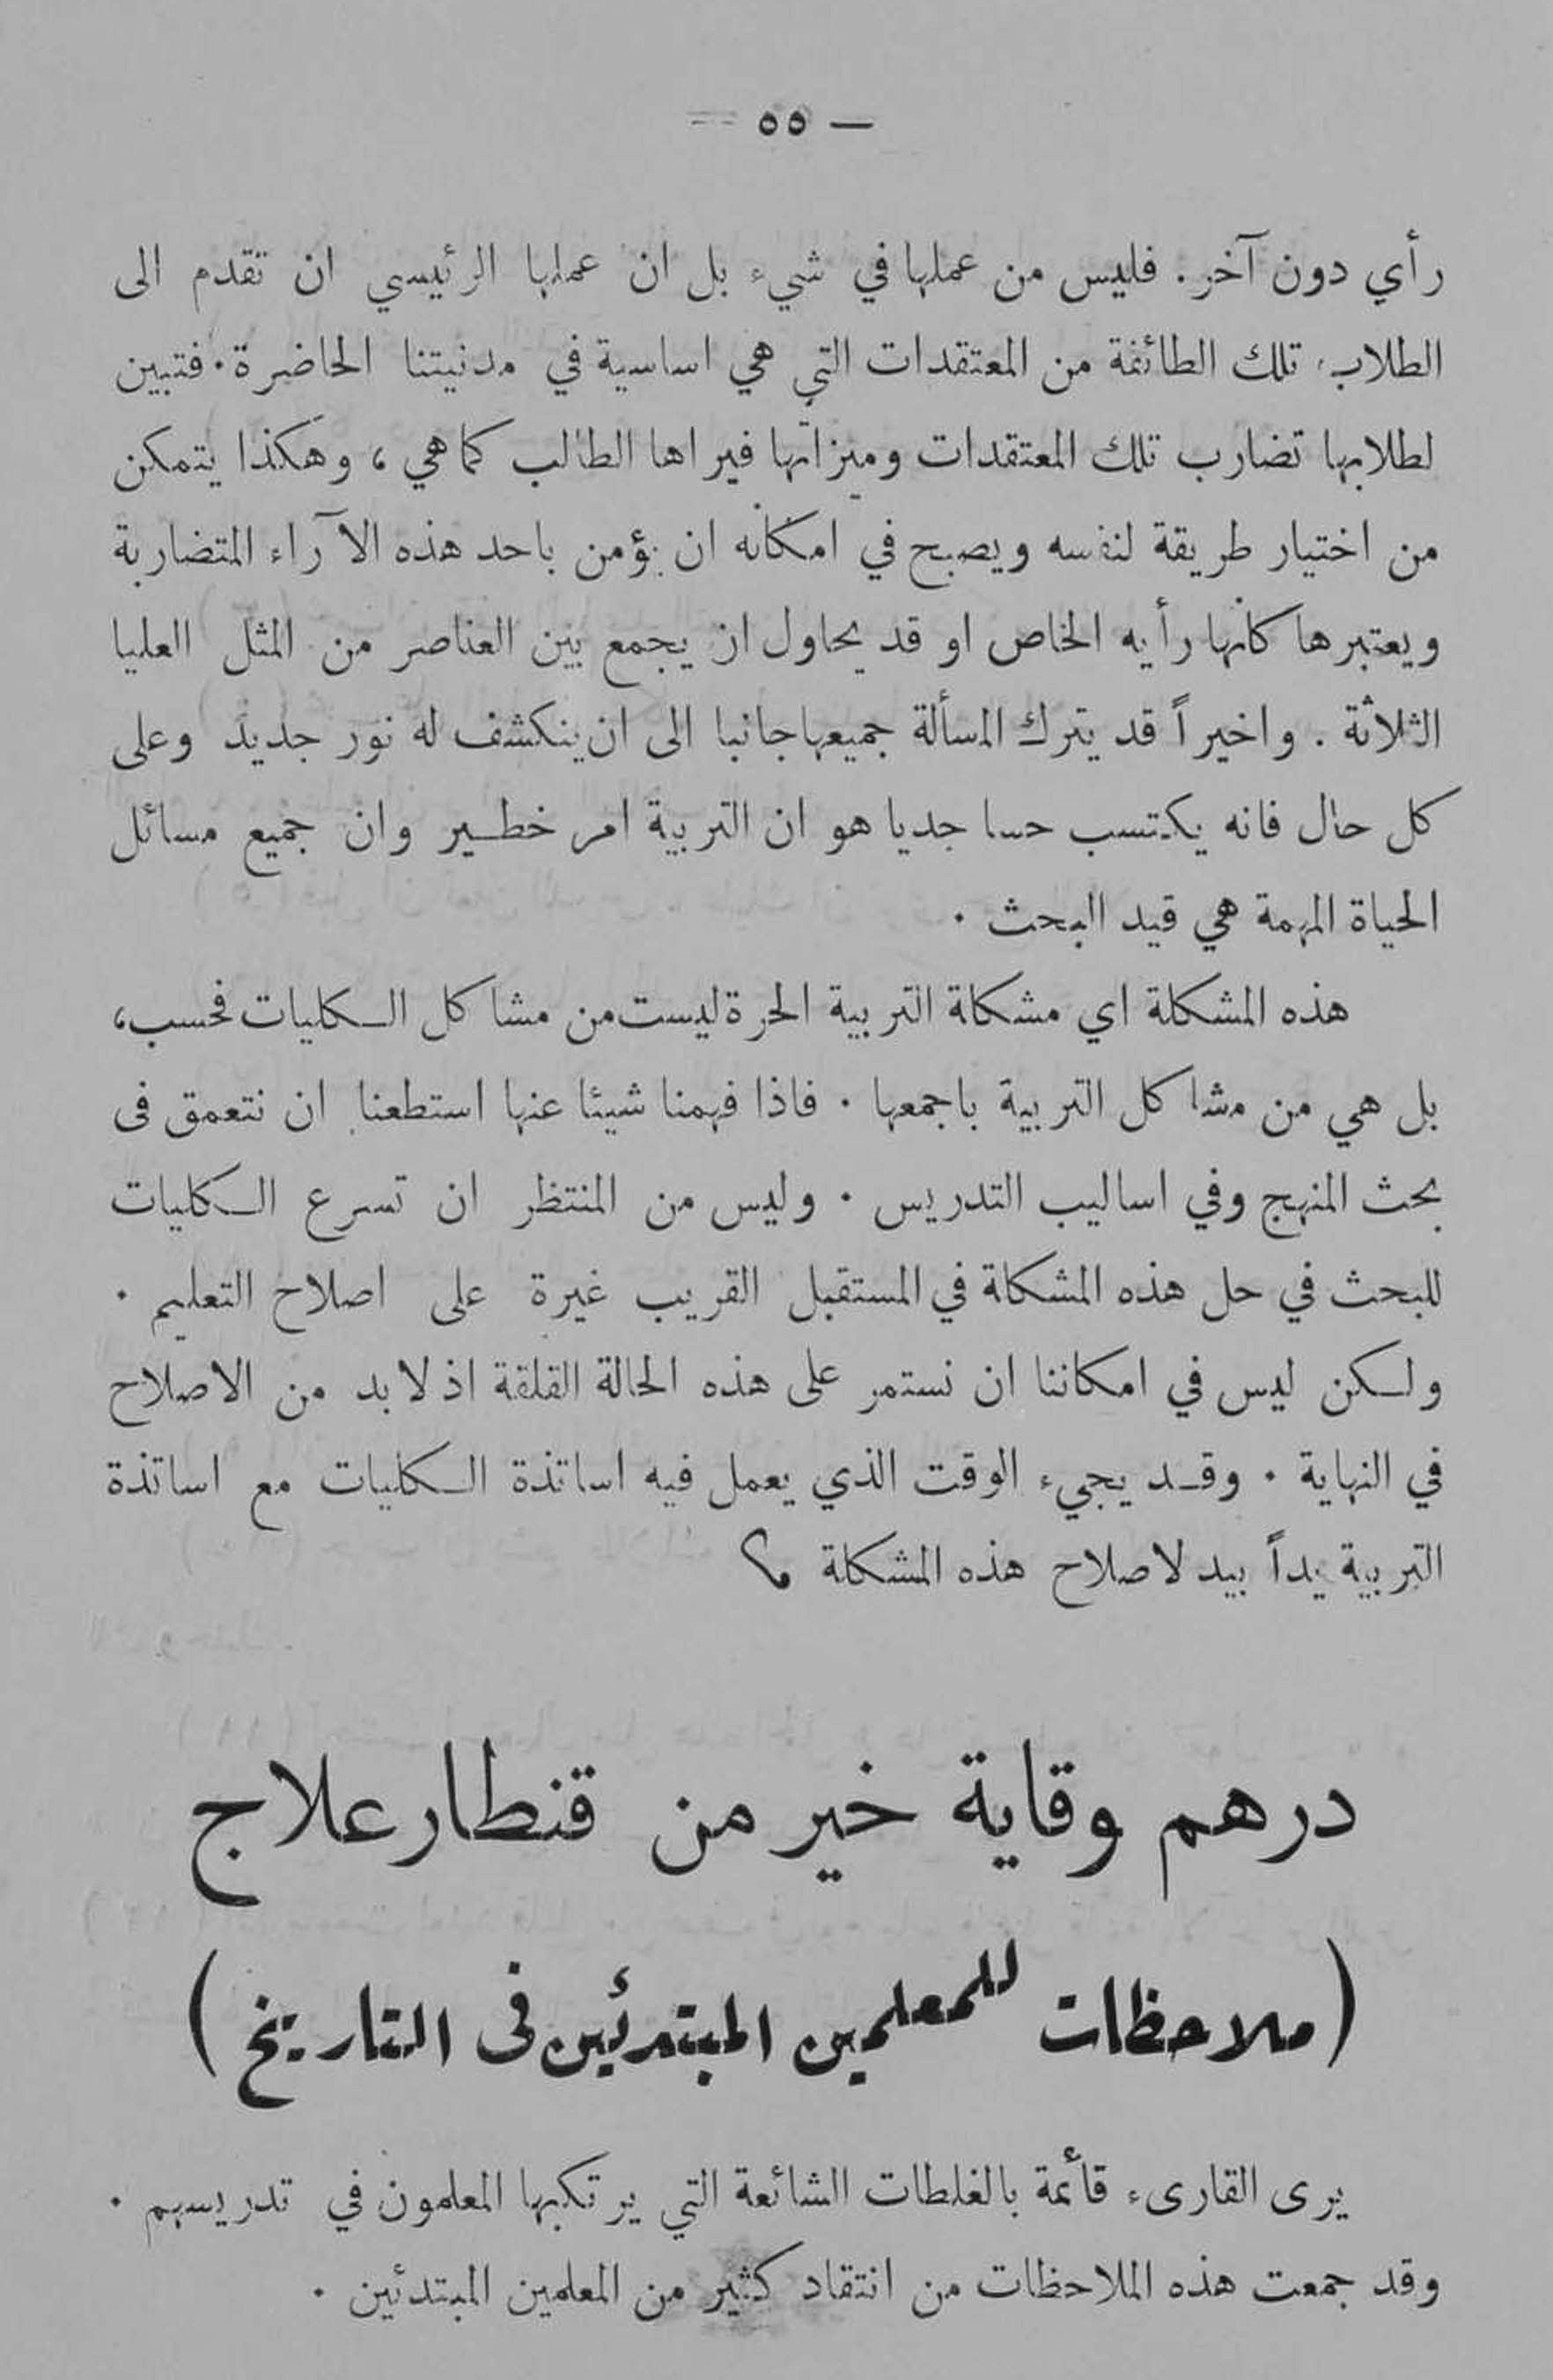 — ٥٥ —
رأي دون آخر. فليس من عملها في شيء بل ان عملها الرئيسي ان تقدم الى
الطلاب تلك الطائفة من المعتقدات التي هي اساسية في مدنيتنا الحاضرة. فتبين
لطلابها تضارب تلك المعتقدات وميزاتها فيراها الطالب كما هي ، وهكذا يتمكن
من اختيار طريقة لنفسه ويصبح في امكانه ان يؤمن باحد هذه الآراء المتضاربة
ويعتبرها كأنها رأيه الخاص او قد يحاول ان يجمع بين العناصر من المثل العليا
الثلاثة . واخيراً قد يترك المسألة جميعها جانبا الى ان ينكشف له نور جديد وعلى
كل حال فانه يكتسب حسا جديا هو ان التربية امر خطـير وان جميع مسائل
الحياة المهمة هي قيد البحث .
هذه المشكلة اي مشكلة التربية الحرة ليست من مشاكل الـكليات فحسب،
بل هي من مشاكل التربية باجمعها . فاذا فهمنا شيئا عنها استطعنا ان نتعمق فى
بحث المنهج وفي اساليب التدريس . وليس من المنتظر ان تسرع الـكليات
للبحث في حل هذه المشكلة في المستقبل القريب غيرة على اصلاح التعليم .
ولـكن ليس في امكاننا ان نستمر على هذه الحالة القلقة اذ لا بد من الاصلاح
في النهاية . وقـد يجيء الوقت الذي يعمل فيه اساتذة الـكليات مع اساتذة
التربية يداً بيد لاصلاح هذه المشكلة
درهم وقاية خير من قنطار علاج
(ملاحظات للمعلمين المبتدئين فى التاريخ)
يرى القارىء قائمة بالغلطات الشائعة التي يرتكبها المعلمون في تدريسهم .
وقد جمعت هذه الملاحظات من انتقاد كثير من المعلمين المبتدئين .